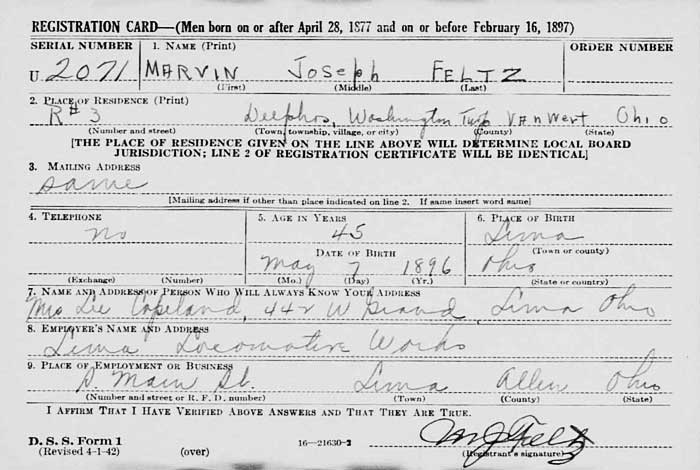 REGISTRATION CARD—(Men born on or after April 28, 1877 and on or before February 16, 1897)
SERIAL NUMBER 1. NAME (Print) ORDER NUMBER
U 2071 MARVIN JOSEPH FELTZ
(First) (Middle) (Last)
2. PLACE OF RESIDENCE (Print)
R#3 Delphos, Washington Twp VAN WERT OHIO
(Number and street) (Town, township, village, or city) (County) (State)
[THE PLACE OF RESIDENCE GIVEN ON THE LINE ABOVE WILL DETERMINE LOCAL BOARD
JURISDICTION; LINE 2 OF REGISTRATION CERTIFICATE WILL BE IDENTICAL]
3. MAILING ADDRESS
same
[Mailing address if other than place indicated on line 2. If same insert word same]
4. TELEPHONE 5. AGE IN YEARS 6. PLACE OF BIRTH
no 45 Lima
DATE OF BIRTH (Town or county)
May 7 1896 Ohio
(Exchange) (Number) (Mo.) (Day) (Yr.) (State or country)
7. NAME AND ADDRESS OF PERSON WHO WILL ALWAYS KNOW YOUR ADDRESS
Mrs Lee Copeland, 442 W Grand, Lima Ohio
8. EMPLOYER'S NAME AND ADDRESS
Lima Locomotive Works
9. PLACE OF EMPLOYMENT OR BUSINESS
S Main St. Lima Allen Ohio
(Number and street or R. F. D. number) (Town) (County) (State)
I AFFIRM THAT I HAVE VERIFIED ABOVE ANSWERS AND THAT THEY ARE TRUE.
M J Feltz
D. S. S. Form 1
(Revised 4-1-42) (over) 16—21630-2 (Registrant's signature)